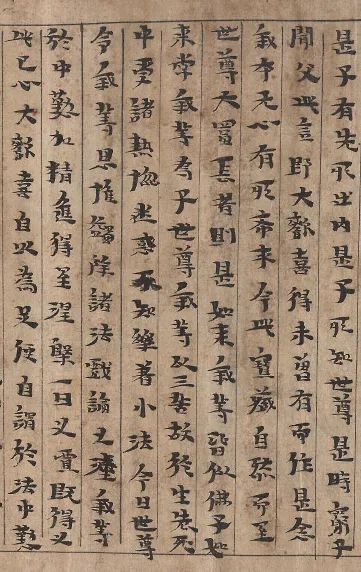 是子有先所出内是子所知世尊是時窮子
聞父此言即大歡喜得未曾有而作是念
我本无心有所希求今此寶藏自然而至
世尊大富長者則是如来我等皆似佛子如
来常我等為子世尊我等以三苦故於生死
中受諸熱惱迷惑不知樂著小法今日世尊
令我等思惟蠲除諸法戲論之糞我等
於中勤加精進得至涅槃一日之價既得之
此已心大歡喜自以為足便自謂於法中勤